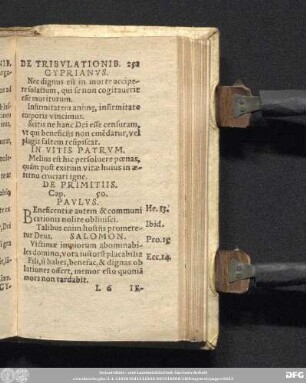 DE TRIBVLATIONIB. 252
CYPRIANVS.
Nec dignus est in morte accipe-
re solatium, qui se non cogitauerit
esse moriturum.
Infirmitatem animę, infirmitate
corporis vincimus.
Scitu ne hanc Dei esse censuram,
vt qui beneficijs non emēdatur, vel
plagis saltem resipiscat.
IN VITIS PATRVM.
Melius est hic persoluere pœnas,
quàm post exitum vitæ huius in æ-
ternū cruciari igne.
DE PRIMITIIS.
Cap. 50.
PAVLVS.
BEneficentiæ autem & communi
cationis nolite obliuisci. He. 13.
Talibus enim hostijs promere- Ibid.
tur Deus. SALOMON.
Victimæ impiorum abominabi- Pro. 15
les domino, vota iustorū placabilia
Fili, si habes, benefac, & dignas ob Ecc. 14.
lationes offert, memor esto quoniā
mors non tardabit.
I. 6 IE-